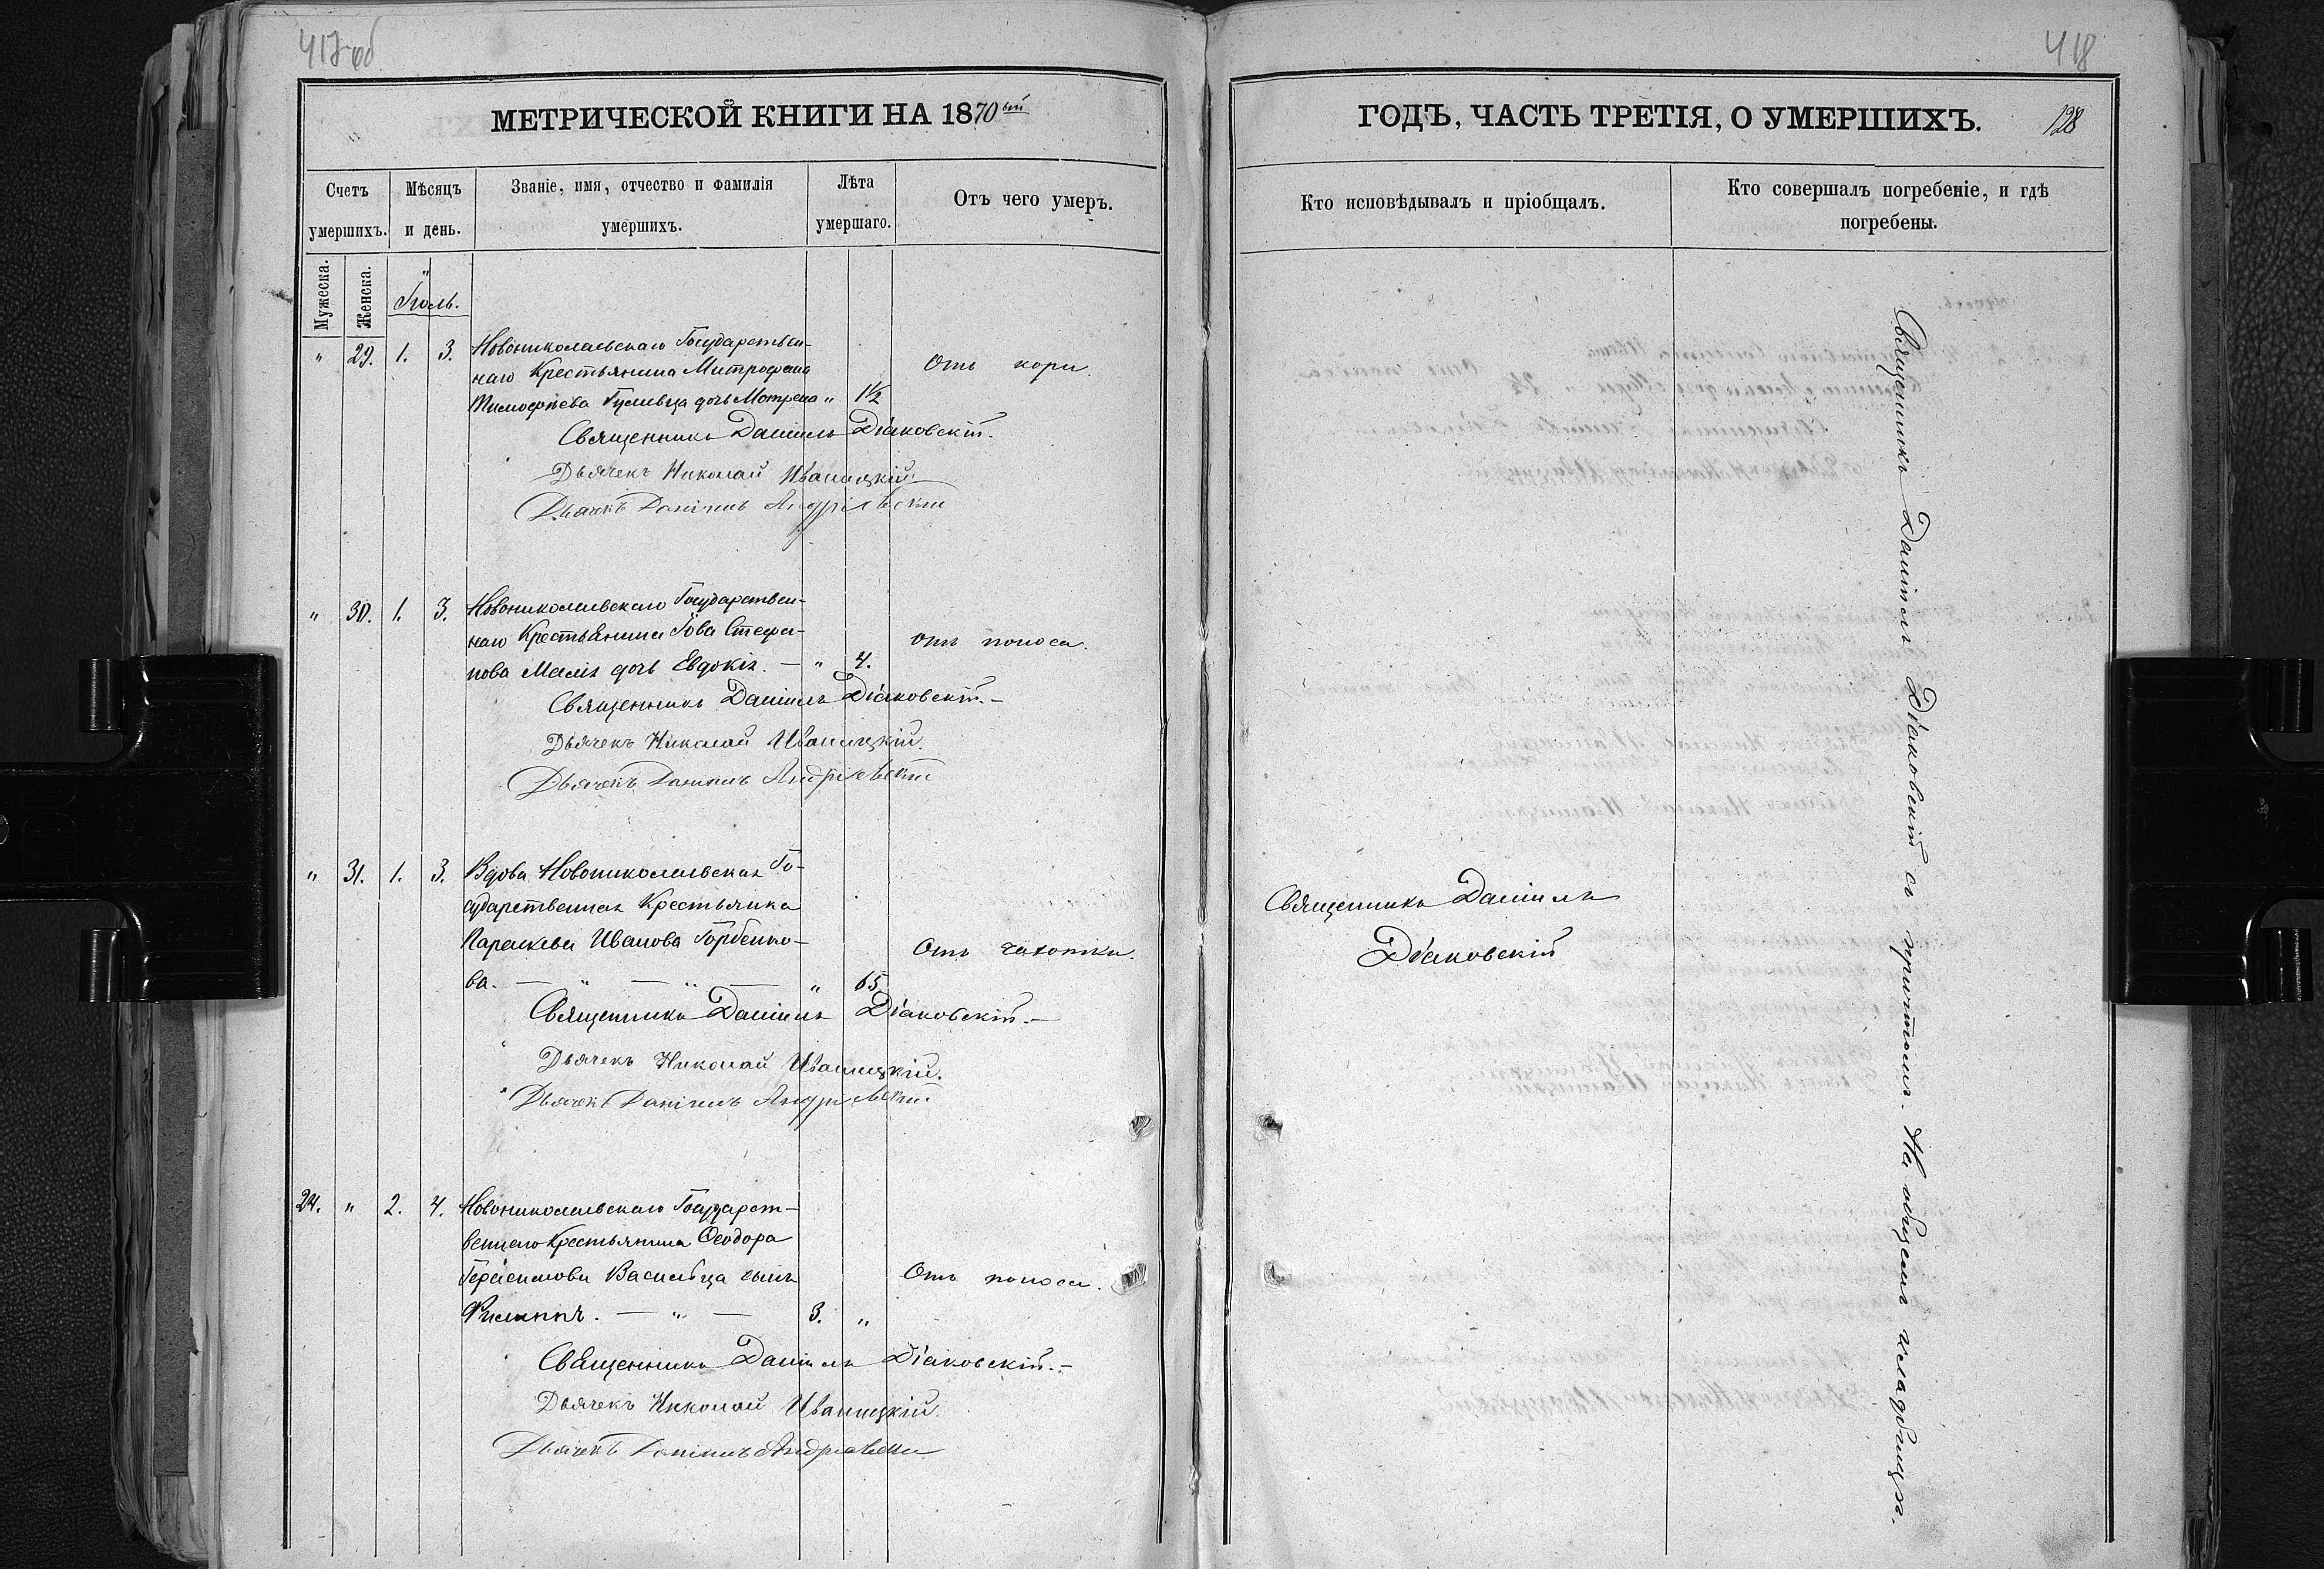 417 об
МЕТРИЧЕСКОЙ КНИГИ НА 1870ый
Счетъ умершихъ.
Мѣсяцъ и день.
Званіе, имя, отчество и фамилія умершихъ.
Лѣта умершаго.
Отъ чего умеръ.
Мужеска.
Женска.
Іюль.
" 29. 1. 3. Новониколаевскаго Государствен-
наго Крестьянина Митрофана Отъ кори.
Тимофѣева дочь Мотрена " 1½
Священникъ Даніилъ Діаковскій.
Дьячекъ Николай Иваницкій
Дьячекъ Даніилъ Андріевскій
" 30. 1. 3. Новониколаевскаго Государствен-
наго Крестьянина Іова Стефа- отъ поноса.
нова Малія дочь Евдокія. — " 4.
Священникъ Даніилъ Діаковскій. —
Дьячекъ Николай Иваницкій.
Дьячекъ Даніилъ Андріевскій
" 31. 1. 3. Вдова Новониколаевская Го-
сударственная Крестьянка
Параскева Иванова Горбенко- Отъ чахотки.
ва. — " — " — " 65
Священникъ Даніилъ Діаковскій. —
Дьячекъ Николай Иваницкій.
Дьячекъ Даніилъ Андріевскій
24. " 2. 4. Новониколаевскаго Государст-
веннаго Крестьянина Ѳеодора
Герасимова Васильца сынъ Отъ поноса.
Филиппъ. — " — 3. "
Священникъ Даніилъ Діаковскій. —
Дьячекъ Николай Иваницкій.
Дьячекъ Даніилъ Андріевскій
418
ГОДЪ, ЧАСТЬ ТРЕТІЯ, О УМЕРШИХЪ. 128
Кто исповѣдывалъ и пріобщалъ.
Кто совершалъ погребеніе, и гдѣ
погребены.
Священникъ Даніилъ
Діаковскій
Священникъ Даніилъ Діаковскій съ причтомъ. На общемъ кладбищѣ.